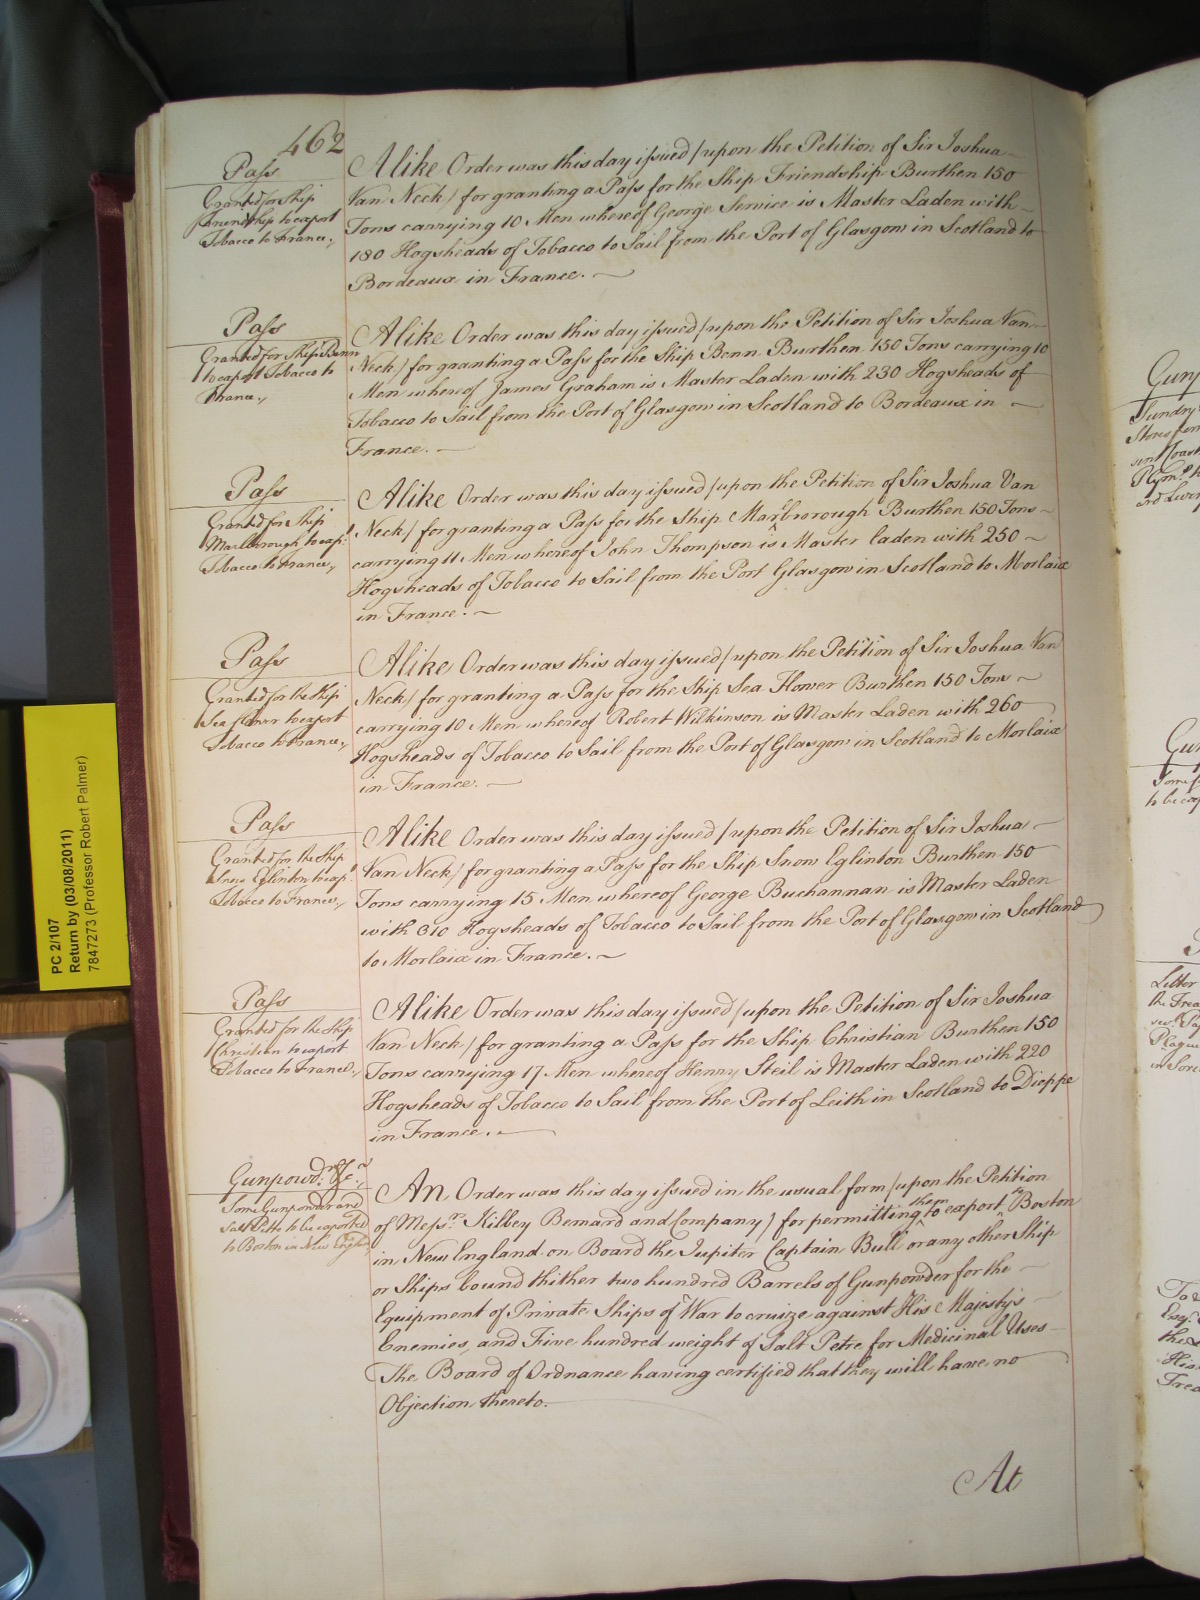 462
Pass
Granted for Ship
Friendship to export
Tobacco to France.
Alike Order was this day issued (upon the Petition of Sir Joshua
Van Neck) for granting a Pass for the Ship Friendship Burthen 150
Tons carrying 10 Men whereof George Service is Master Laden with
180 Hogsheads of Tobacco to Sail from the Port of Glasgow in Scotland to
Bordeaux in France.
Pass
Granted for Ship Benn
to export Tobacco to
France.
Alike Order was this day issued (upon the Petition of Sir Joshua Van
Neck) for granting a Pass for the Ship Benn Burthen 150 Tons carrying 10
Men whereof James Graham is Master Laden with 230 Hogsheads of
Tobacco to Sail from the Port of Glasgow in Scotland to Bordeaux in
France.
Pass
Granted for Ship
Marlborough to exp.t
Tobacco to France,
Alike Order was this day issued (upon the Petition of Sir Joshua Van
Neck) for granting a Pass for the Ship Marlbrorough Burthen 150 Tons
carrying 11 Men whereof John Thompson is Master laden with 250
Hogsheads of Tobacco to Sail from the Port Glasgow in Scotland to Morlaix
in France.
Pass
Granted for the Ship
Sea flower to export
Tobacco to France,
Alike Order was this day issued (upon the Petition of Sir Joshua Van
Neck) for granting a Pass for the Ship Sea Flower Burthen 150 Tons
carrying 10 Men whereof Robert Wilkinson is Master Laden with 260
Hogsheads of Tobacco to Sail from the Port of Glasgow in Scotland to Morlaix
in France.
Pass
Granted for the Ship
Snow Eglinton to exp.t
Tobacco to France,
Alike Order was this day issued (upon the Petition of Sir Joshua
Van Neck) for granting a Pass for the Ship Snow Eglinton Burthen 150
Tons carrying 15 Men whereof George Buchannan is Master Laden
with 310 Hogsheads of Tobacco to Sail from the Port of Glasgow in Scotland
to Morlaix in France.
Pass
Granted for the Ship
Christian to export
Tobacco to France,
Alike Order was this day issued (upon the Petition of Sir Joshua
Van Neck) for granting a Pass for the Ship Christian Burthen 150
Tons carrying 17 Men whereof Henry Steil is Master Laden with 220
Hogsheads of Tobacco to Sail from the Port of Leith in Scotland to Dieppe
in France.
Gunpowd.r &c.a
Some Gunpowder and
Salt Petre to be exported
to Boston in New England,
An Order was this day issued in the usual form (upon the Petition
of Mess.rs Kilbey Bernard and Company) for permitting them to export to Boston
in New England on Board the Jupiter Captain Bull or any other Ship
or Ships bound thither two hundred Barrels of Gunpowder for the
Equipment of Private Ships of War to cruize against His Majesty's
Enemies, and Five hundred weight of Salt Petre for Medicinal Uses
The Board of Ordnance having certified that they will have no
Objection thereto.
At
PC 2/107
Return by (03/08/2011)
7847273 (Professor Robert Palmer)
Sundry
Letter